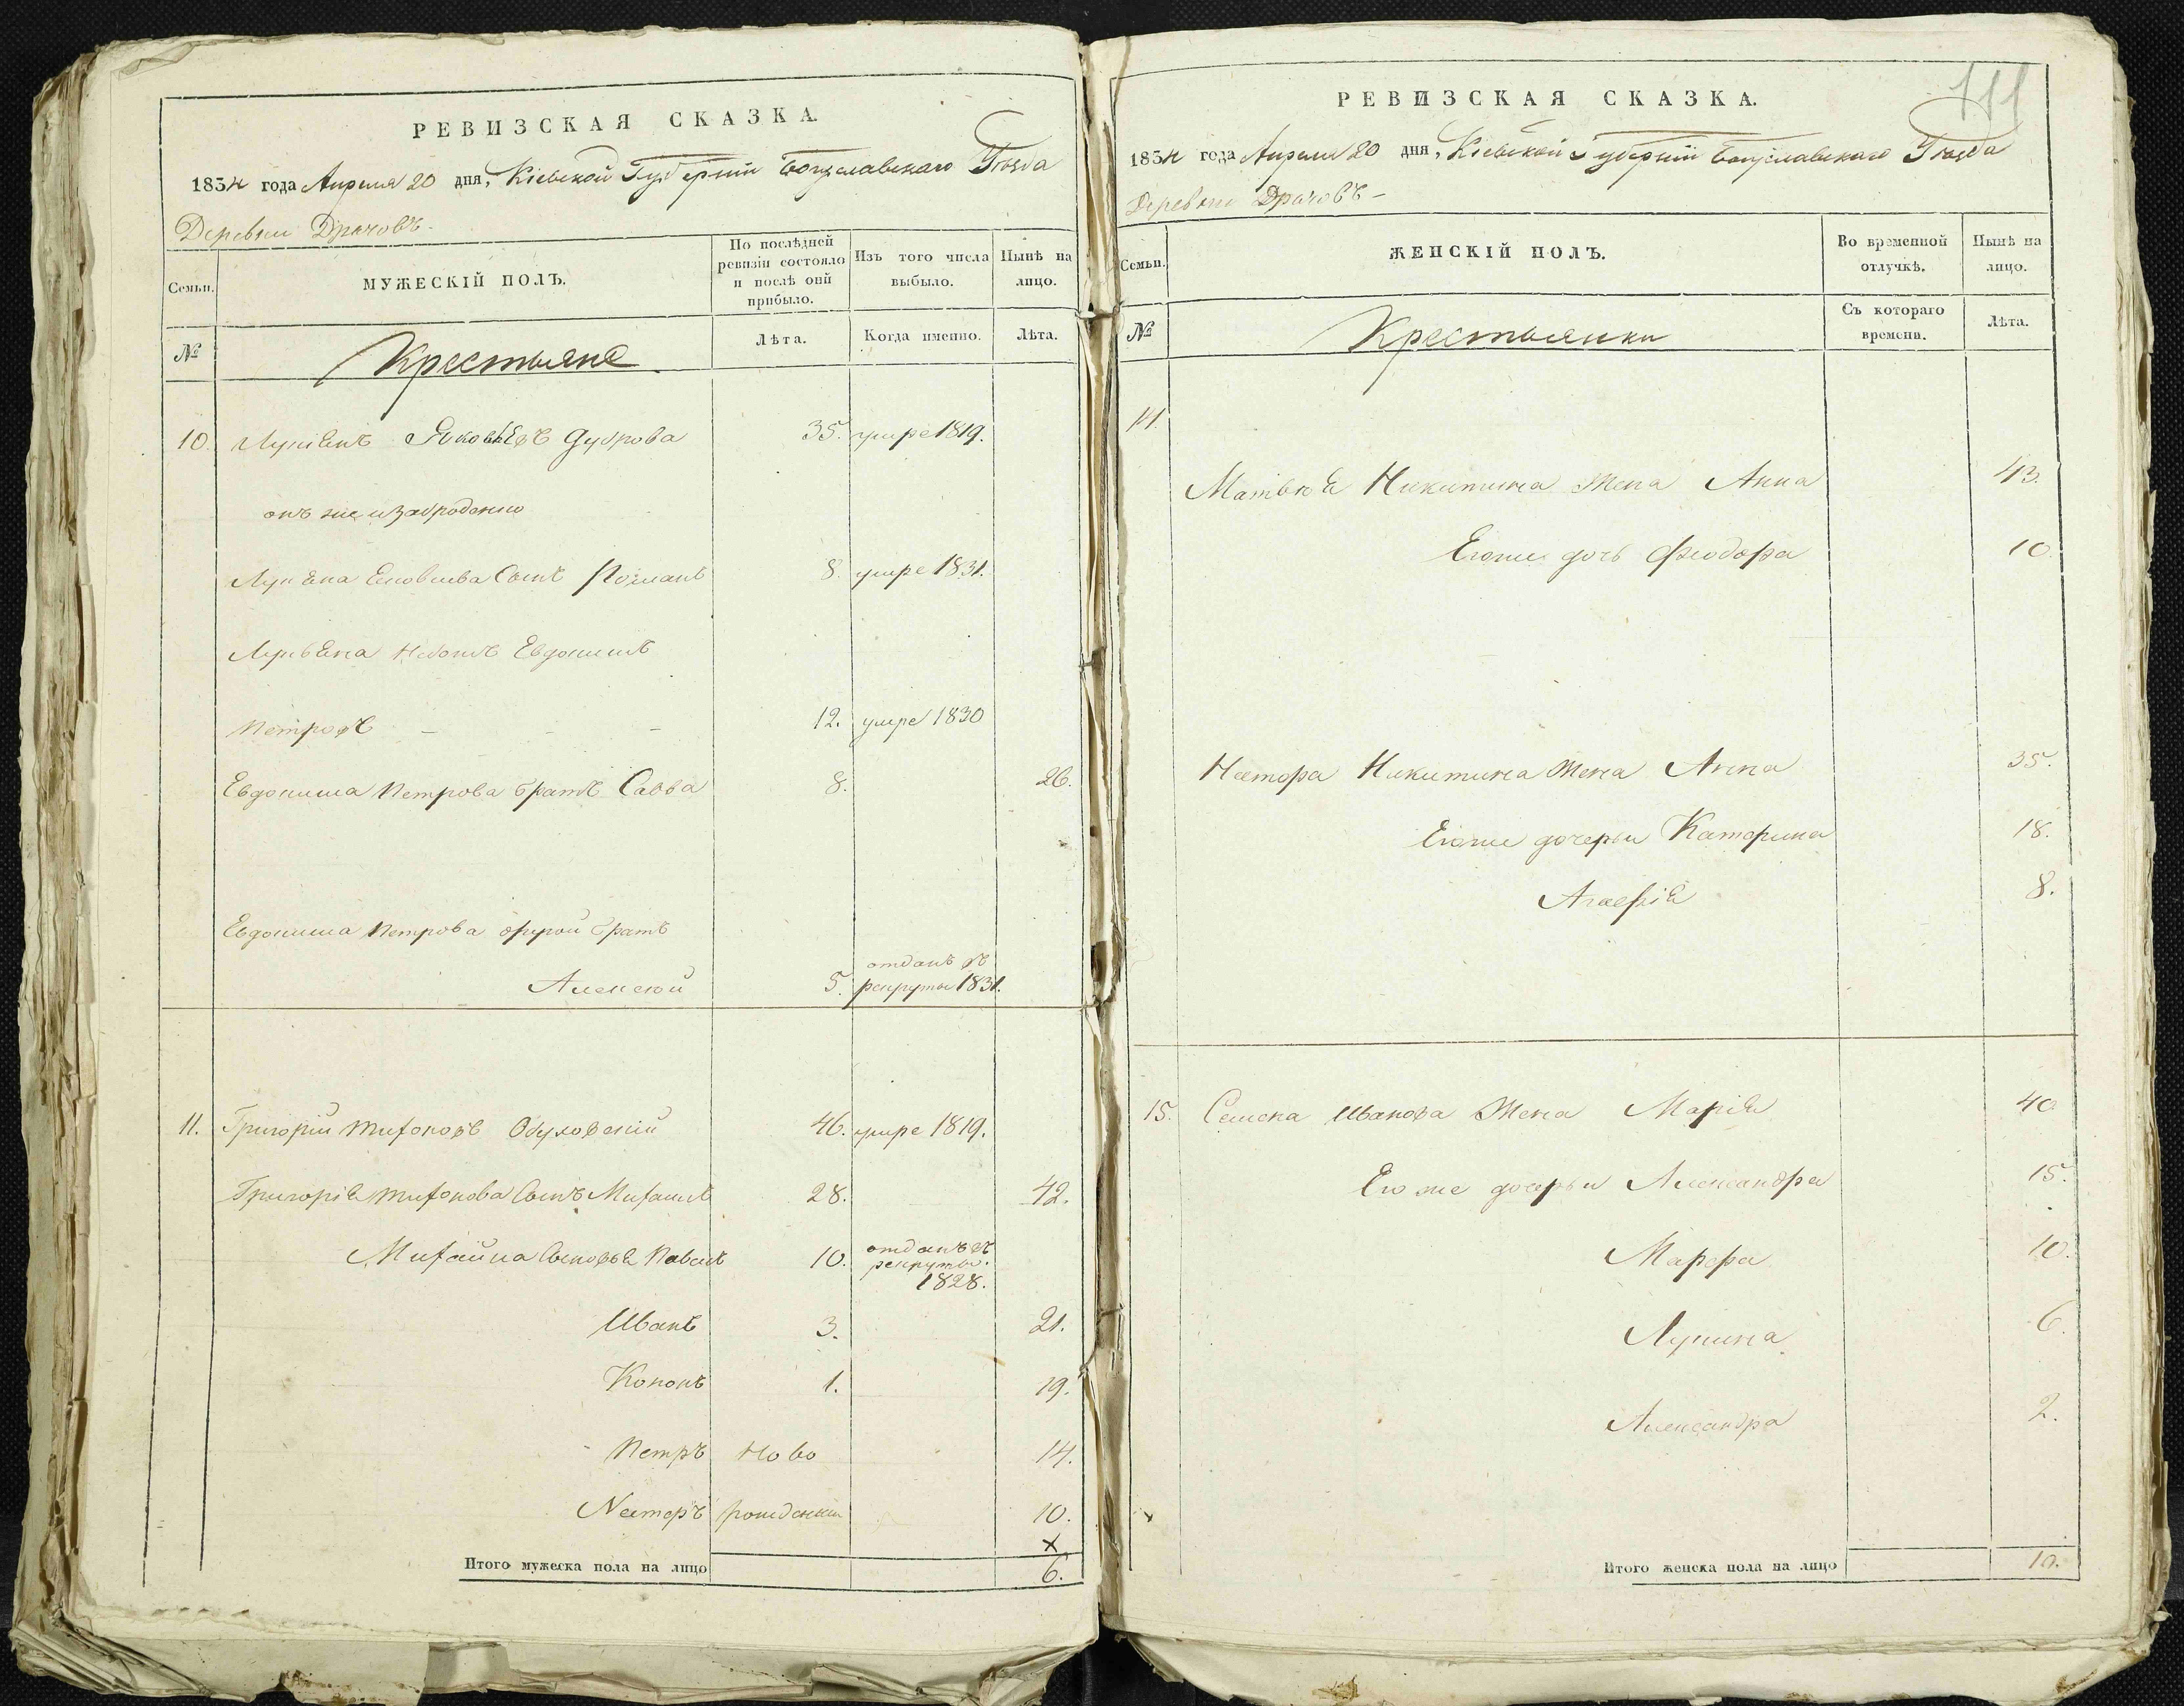 РЕВИЗСКАЯ СКАЗКА.
1834 года Апреля 20 дня, Кіевской Губерніи Богуславскаго Уѣзда
Деревни Драчовъ
Семьи.
МУЖЕСКІЙ ПОЛЪ.
По послѣдней ревизіи состояло и послѣ оній прибыло.
Изъ того числа выбыло.
Нынѣ на лицо.
№
Крестьяне
Лѣта.
Когда именно.
Лѣта.
10. Яковлевъ Дуброва 35. умре 1819.
онъ же
Сынъ Романъ 8. умре 1831.
Евдокимъ
Петровъ 12. умре 1830
Евдокима Петрова братъ Савва 8. 26.
Евдокима Петрова другой братъ
Алексей 5. отданъ въ рекруты 1831.
11. Григорій Тихоновъ Обуховскій 46. умре 1819.
Григорія Тихонова Сынъ Михаилъ 28. 42.
Михайла Сыновья Павелъ 10. отданъ въ рекруты 1828.
Иванъ 3. 21.
Кононъ 1. 19.
Петръ Ново 14.
Несторъ рожденни 10.
х
Итого мужеска пола на лицо 6.
111
РЕВИЗСКАЯ СКАЗКА.
1834 года Апреля 20 дня, Кіевской Губерніи Богуславскаго Уѣзда
Деревни Драчовъ
Семьи.
ЖЕНСКІЙ ПОЛЪ.
Во временной отлучкѣ.
Нынѣ на лицо.
№
Крестьянки
Съ котораго времени.
Лѣта.
14
Матвея Никитина Жена Анна 43.
Егоже дочь Феодора 10.
Нестора Никитина Жена Анна 35.
Егоже дочеры Катерина 18.
Агафія 8.
15. Семена Иванова Жена Марія 40
Его же дочеры Александра 15.
Марфа 10.
6.
Александра 2.
х
Итого женска пола на лицо 10.